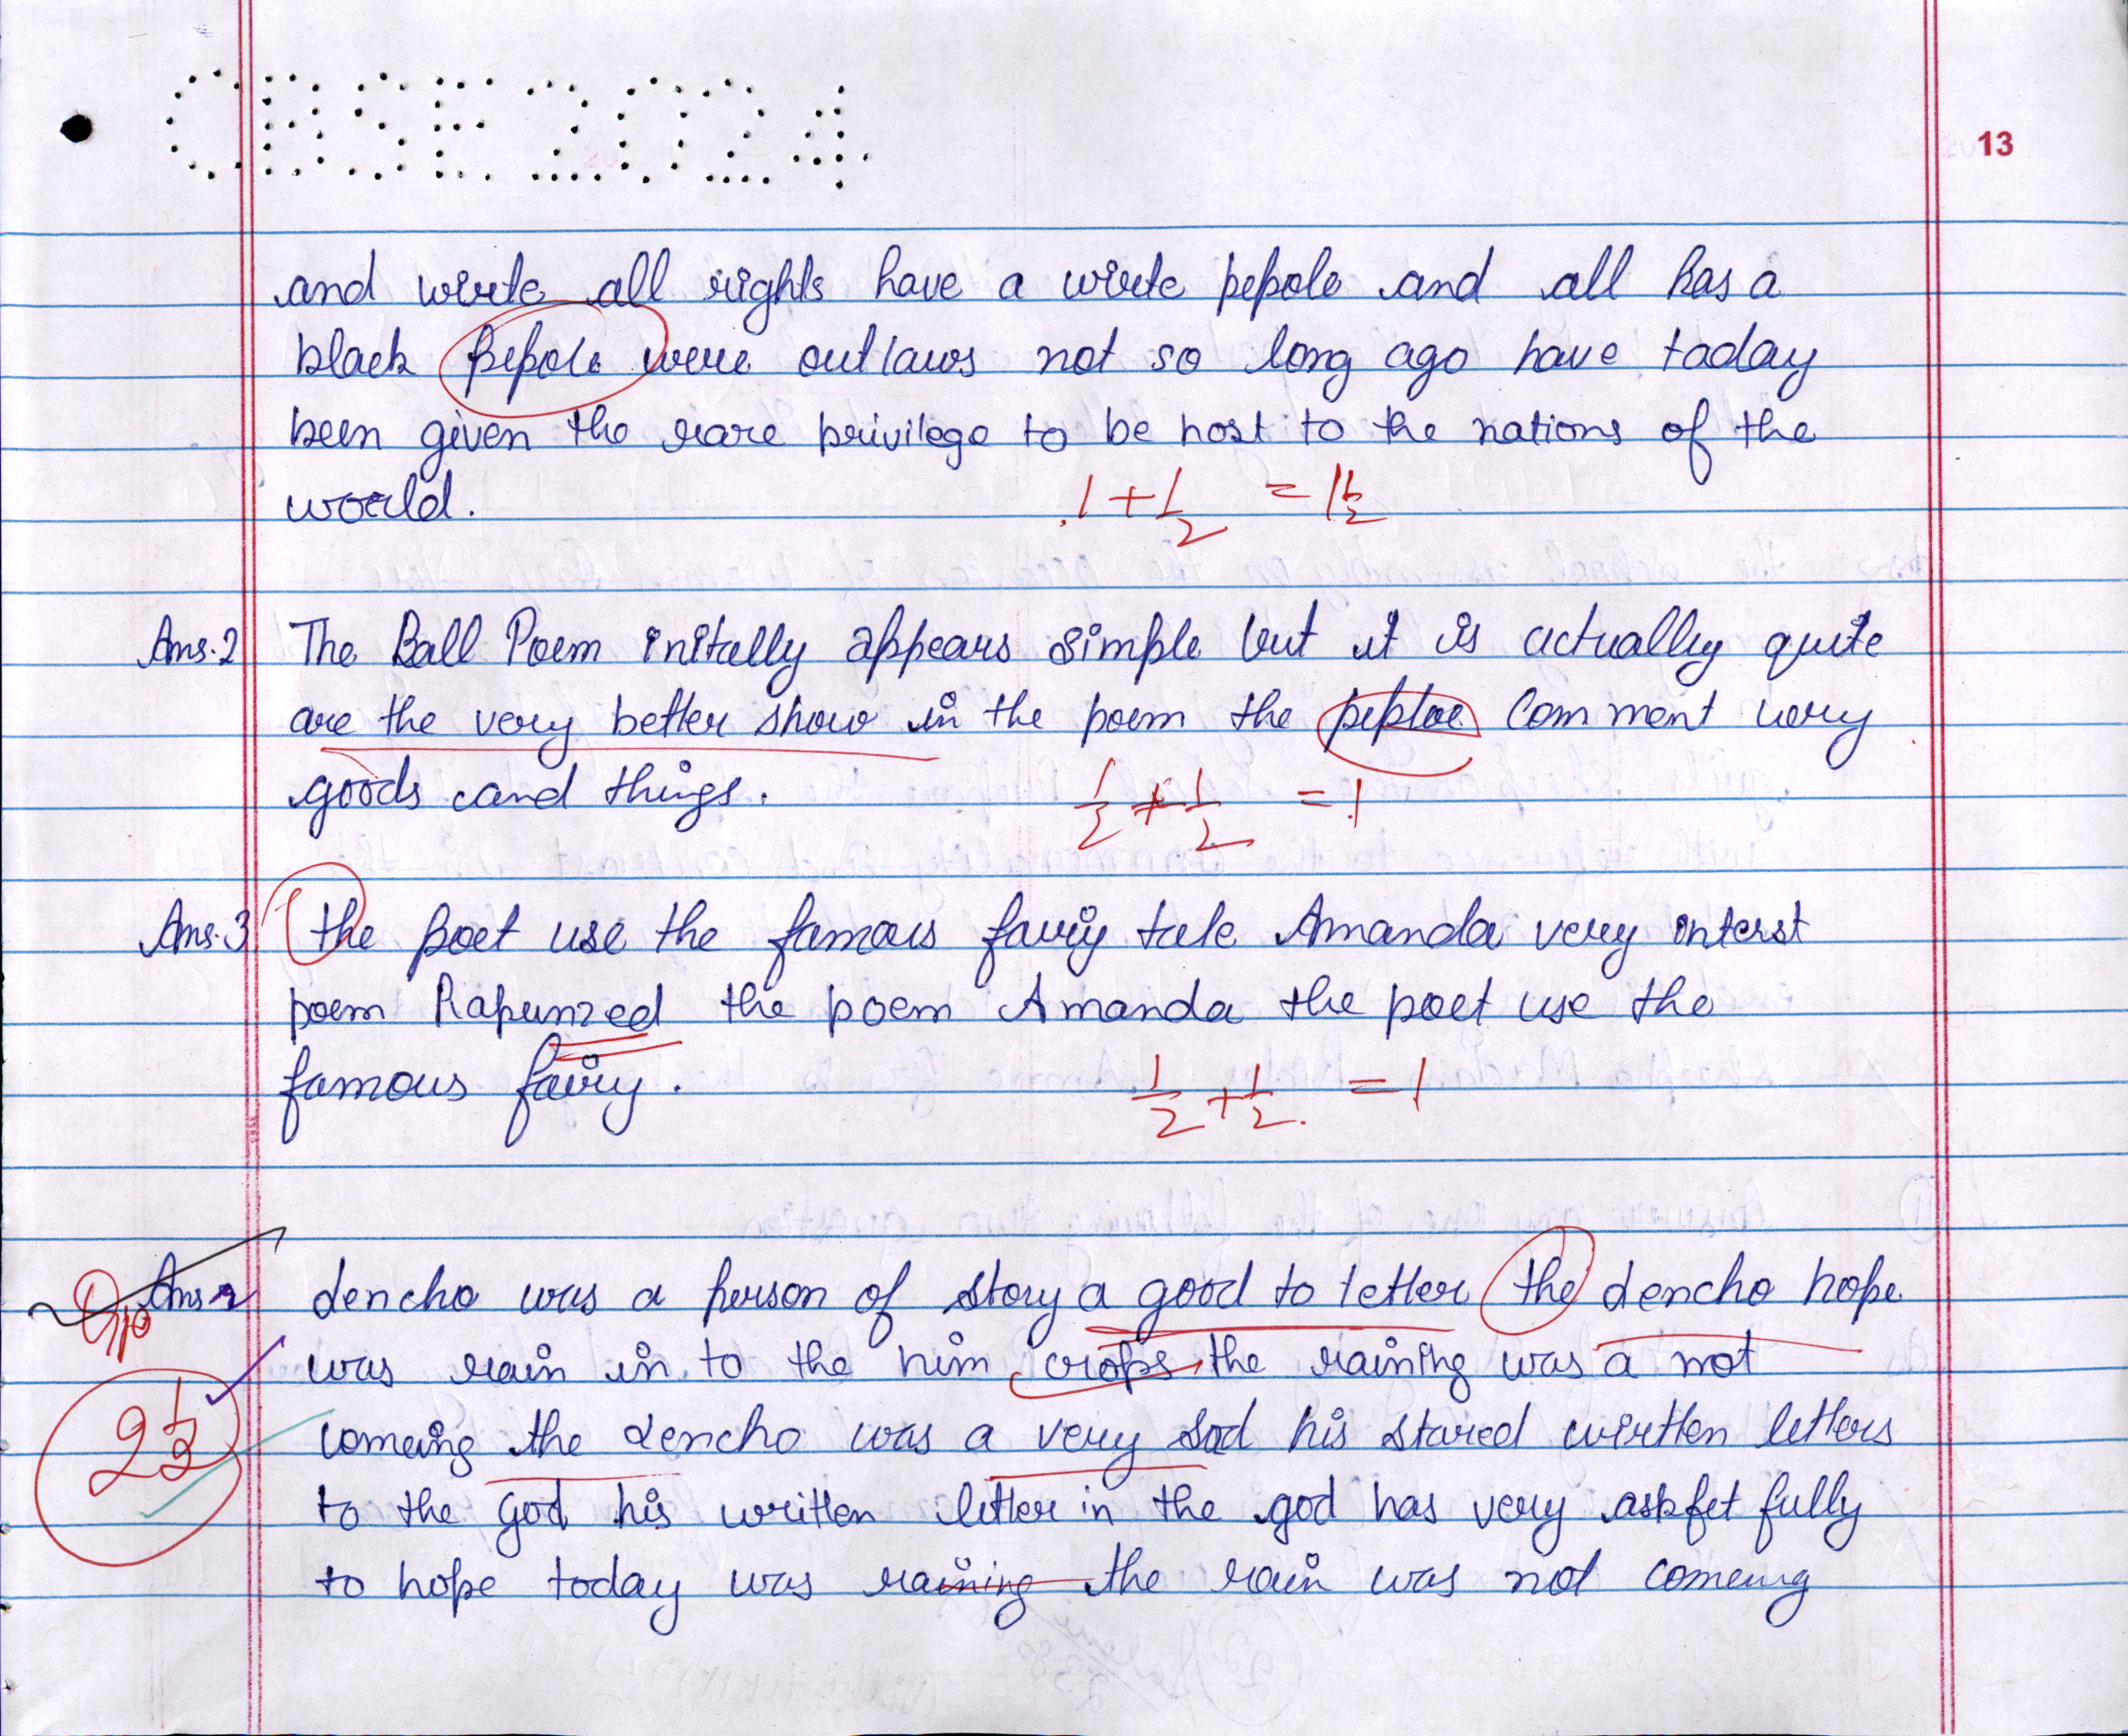 CBSE 2024
13
and wirte all rights have a wirte pepole and all has a
black pepole were outlaws not so long ago have taday
been given the rare privilege to be host to the nations of the
world.
1 + 1/2 = 1 1/2
Ans.2 The Ball Poem initally appears simple but it is actually quite
are the very better show in the poem the peploe comment very
goods and things.
1/2 + 1/2 = 1
Ans.3 the poet use the famous fairy tale Amanda very interst
poem Rapunzed the poem Amanda the poet use the
famous fairy.
1/2 + 1/2 = 1
Ans dencho was a person of story a good to letter the dencho hope
was rain in to the him crops the raining was a not
2 1/2
comeing the dencho was a very sad his stared wirtten letters
to the god his written letter in the god has very fully
to hope today was raining the rain was not comeing